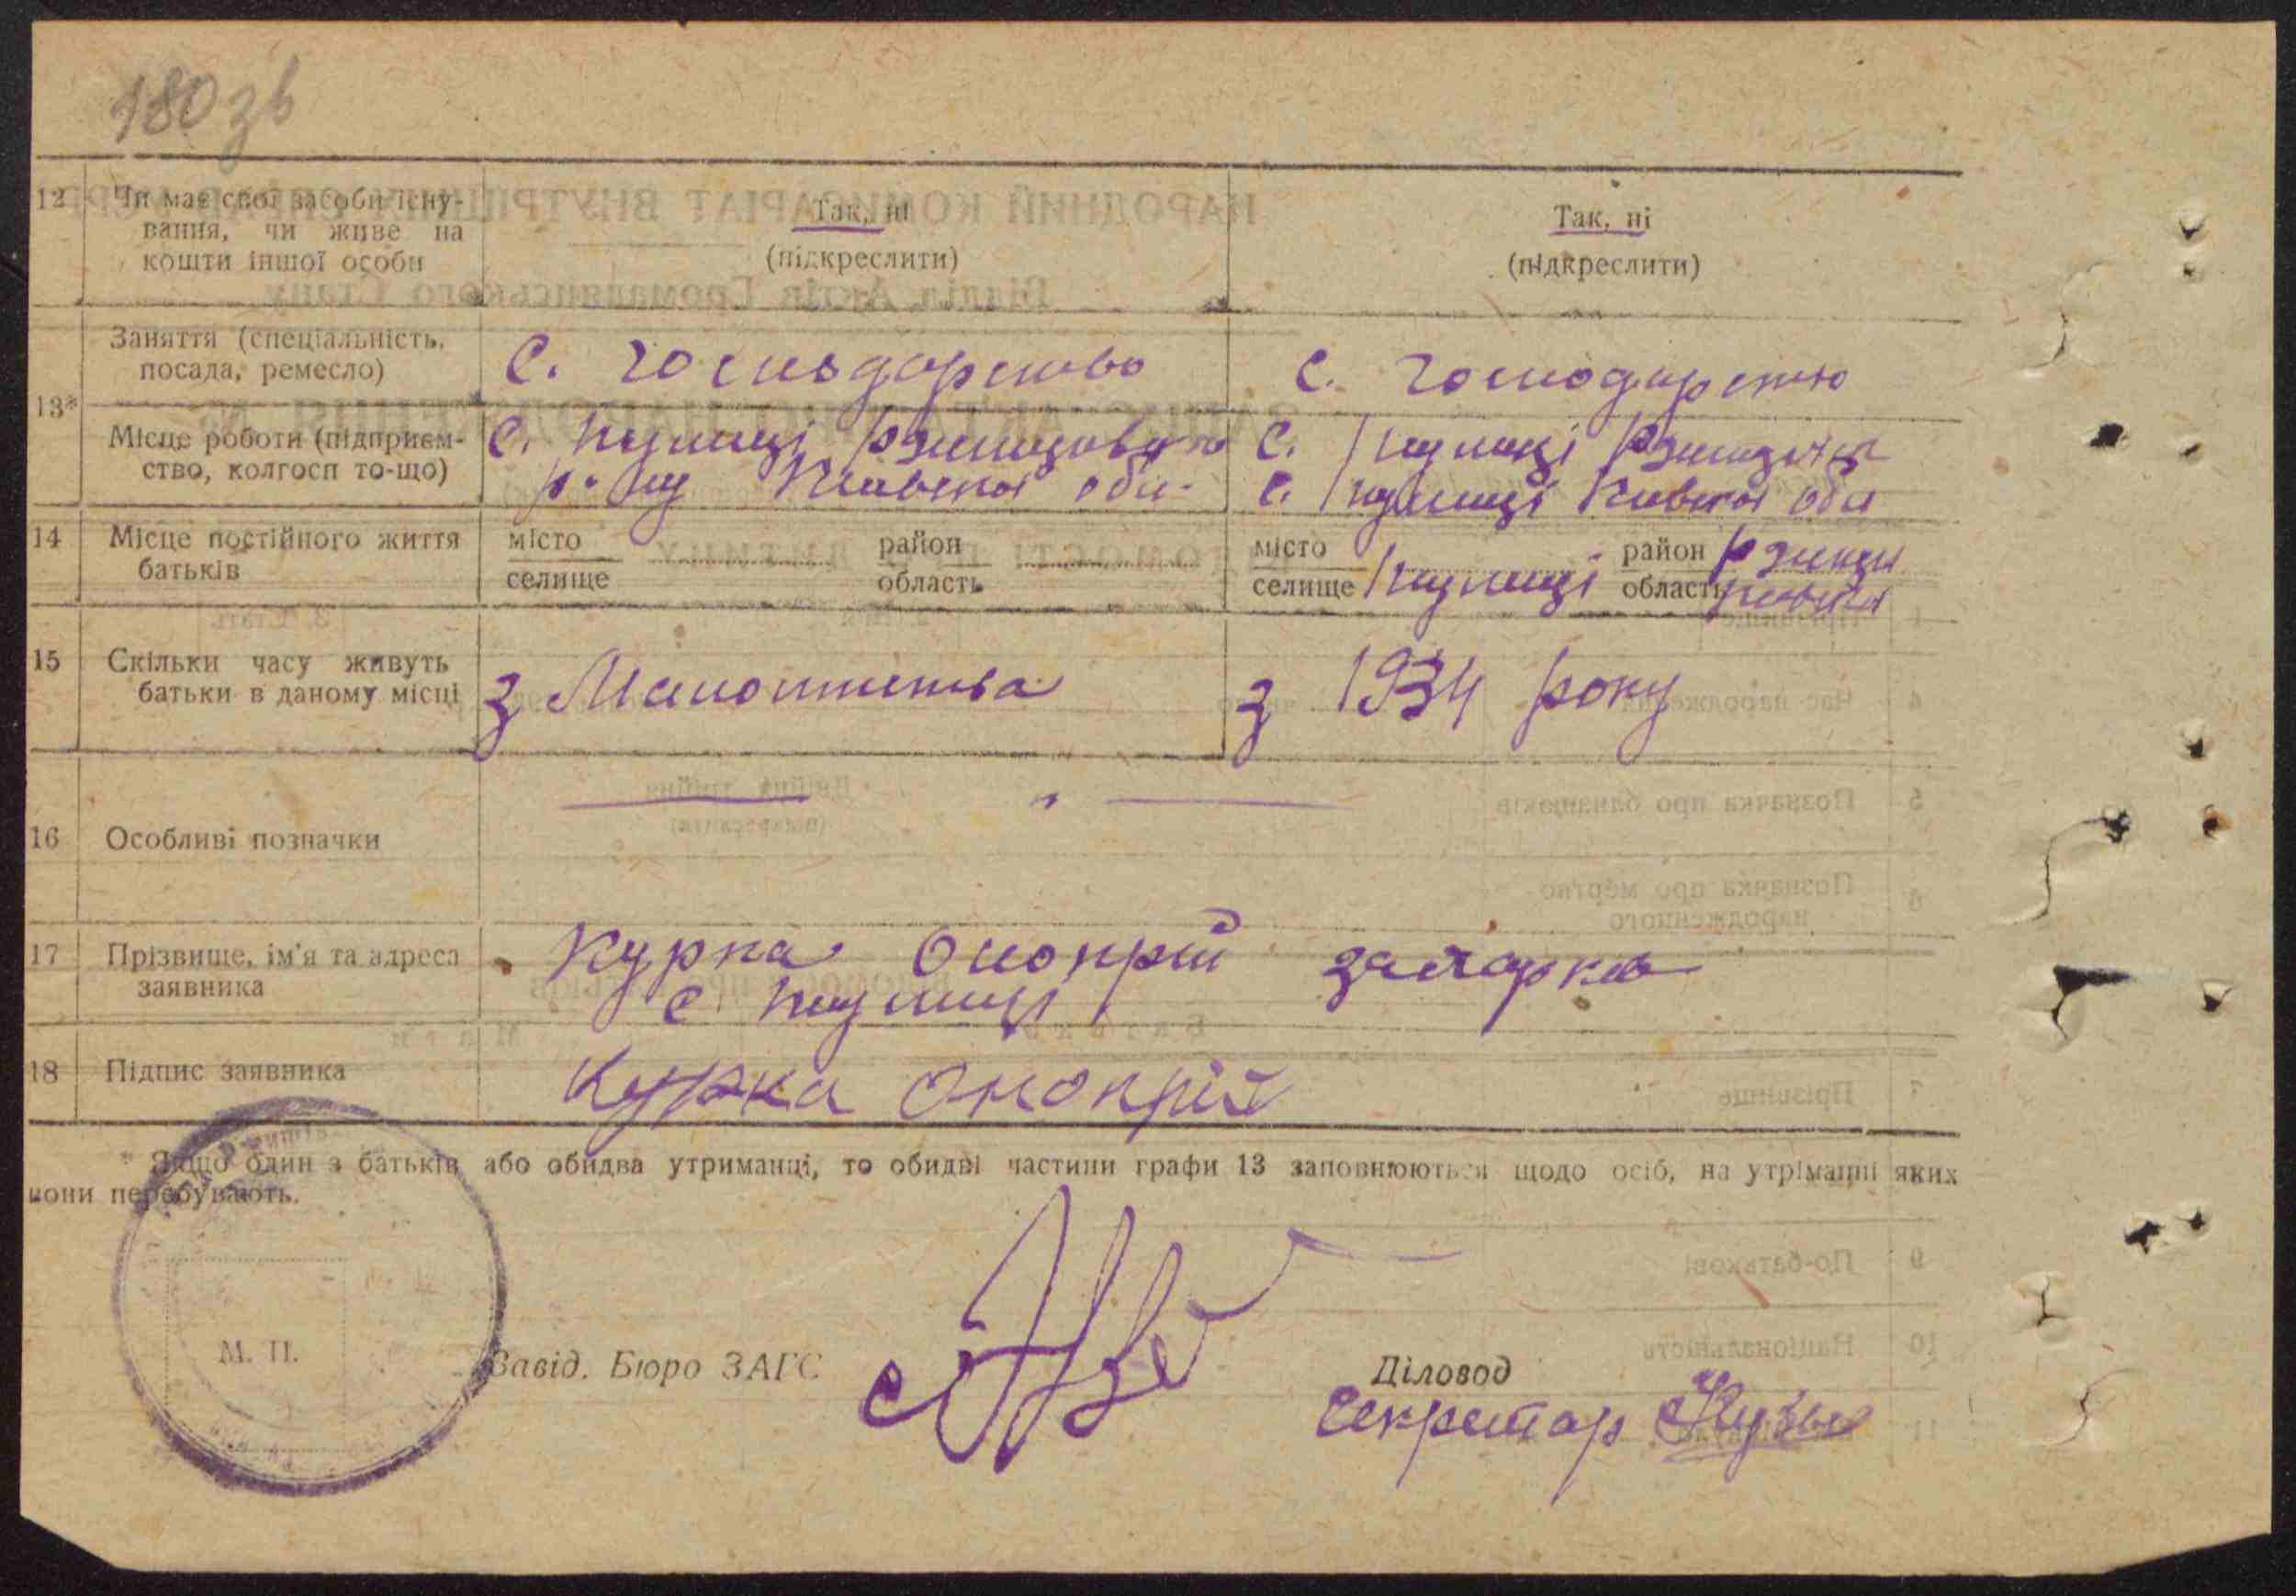 180 зв
12 Чи має свої засоби існу-
вання, чи живе на
кошти іншої особи
Так, ні
(підкреслити)
Так, ні
(підкреслити)
13*
Заняття (спеціальність,
посада, ремесло)
С. господарство
С. господарство
Місце роботи (підприєм-
ство, колгосп то-що)
С. Кулиці
р-ну Київської обл.
С. Кулиці
С. Кулиці Київської обл
14 Місце постійного життя
батьків
місто
селище
район
область
місто
селище
Кулиці
район
область
15 Скільки часу живуть
батьки в даному місці
з
з 1934 року
16 Особливі позначки
17 Прізвище, ім'я та адреса
заявника
Курка Онопрій
с Кулиці
18 Підпис заявника
Курка Онопрій
* Якщо один з батьків або обидва утриманці, то обидві частини графи 13 заповнюються щодо осіб, на утріманні яких
вони перебувають.
М. П.
Завід. Бюро ЗАГС
Діловод
Секретар